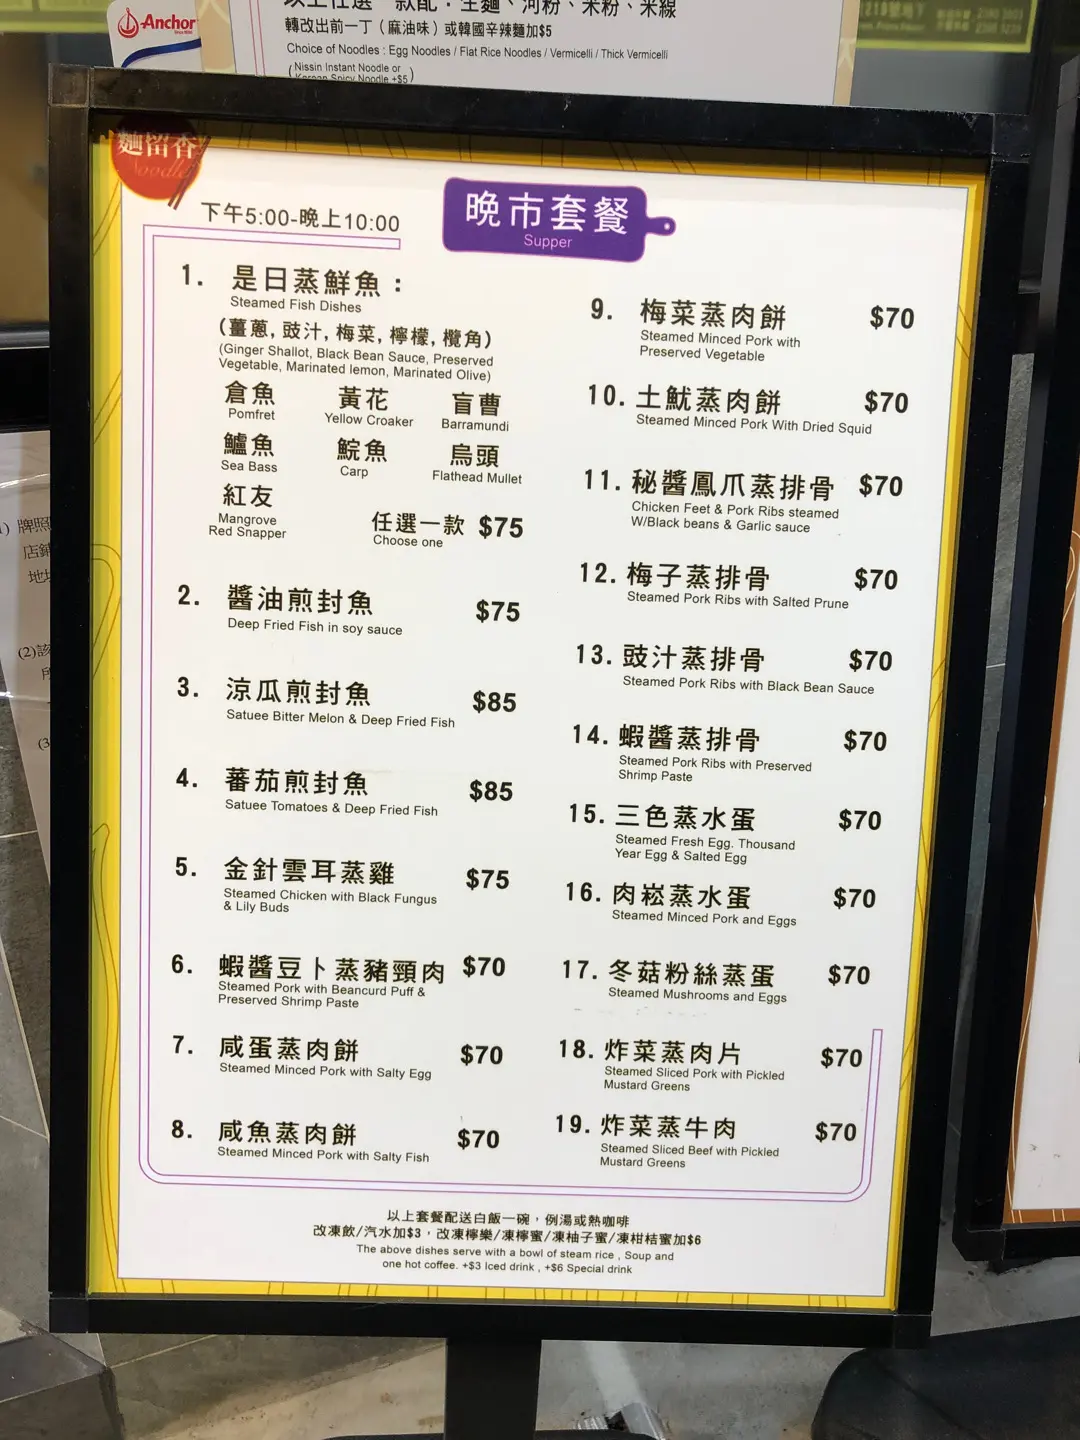 Anchor
以上任選一款配：生麵、河粉、米粉、米線
轉改出前一丁（麻油味）或韓國辛辣麵加$5
Choice of Noodles : Egg Noodles / Flat Rice Noodles / Vermicelli / Thick Vermicelli
(Nissin Instant Noodle or
Korean Spicy Noodle +$5)
麵留香
Noodle
下午5:00-晚上10:00
晚市套餐
Supper
1. 是日蒸鮮魚：
Steamed Fish Dishes
(薑蔥, 豉汁, 梅菜, 檸檬, 欖角)
(Ginger Shallot, Black Bean Sauce, Preserved
Vegetable, Marinated lemon, Marinated Olive)
倉魚 黃花 盲曹
Pomfret Yellow Croaker Barramundi
鱸魚 鯇魚 烏頭
Sea Bass Carp Flathead Mullet
紅友
Mangrove
Red Snapper
任選一款 $75
Choose one
2. 醬油煎封魚 $75
Deep Fried Fish in soy sauce
3. 涼瓜煎封魚 $85
Satuee Bitter Melon & Deep Fried Fish
4. 蕃茄煎封魚 $85
Satuee Tomatoes & Deep Fried Fish
5. 金針雲耳蒸雞 $75
Steamed Chicken with Black Fungus
& Lily Buds
6. 蝦醬豆卜蒸豬頸肉 $70
Steamed Pork with Beancurd Puff &
Preserved Shrimp Paste
7. 咸蛋蒸肉餅 $70
Steamed Minced Pork with Salty Egg
8. 咸魚蒸肉餅 $70
Steamed Minced Pork with Salty Fish
9. 梅菜蒸肉餅 $70
Steamed Minced Pork with
Preserved Vegetable
10. 土魷蒸肉餅 $70
Steamed Minced Pork With Dried Squid
11. 秘醬鳳爪蒸排骨 $70
Chicken Feet & Pork Ribs steamed
W/Black beans & Garlic sauce
12. 梅子蒸排骨 $70
Steamed Pork Ribs with Salted Prune
13. 豉汁蒸排骨 $70
Steamed Pork Ribs with Black Bean Sauce
14. 蝦醬蒸排骨 $70
Steamed Pork Ribs with Preserved
Shrimp Paste
15. 三色蒸水蛋 $70
Steamed Fresh Egg. Thousand
Year Egg & Salted Egg
16. 肉崧蒸水蛋 $70
Steamed Minced Pork and Eggs
17. 冬菇粉絲蒸蛋 $70
Steamed Mushrooms and Eggs
18. 炸菜蒸肉片 $70
Steamed Sliced Pork with Pickled
Mustard Greens
19. 炸菜蒸牛肉 $70
Steamed Sliced Beef with Pickled
Mustard Greens
以上套餐配送白飯一碗，例湯或熱咖啡
改凍飲/汽水加$3，改凍檸樂/凍檸蜜/凍柚子蜜/凍柑桔蜜加$6
The above dishes serve with a bowl of steam rice , Soup and
one hot coffee. +$3 Iced drink , +$6 Special drink
牌照
店鋪
(2)該